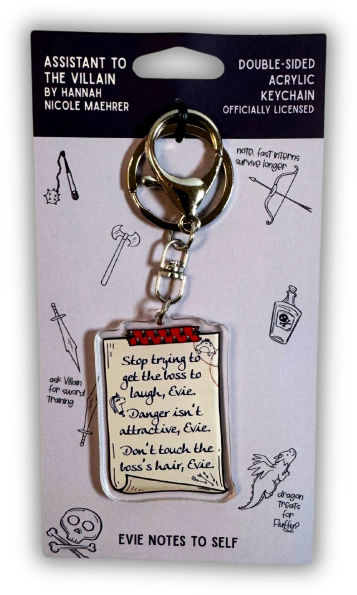 ASSISTANT TO
THE VILLAIN
BY HANNAH
NICOLE MAEHRER
DOUBLE-SIDED
ACRYLIC
KEYCHAIN
OFFICIALLY LICENSED
note, fast interns
survive longer
Stop trying to
get the boss to
laugh, Evie.
Danger isn't
attractive, Evie.
Don't touch the
boss's hair, Evie.
ask Villain
for sword
training
dragon
treats
for
Fluffy?
EVIE NOTES TO SELF